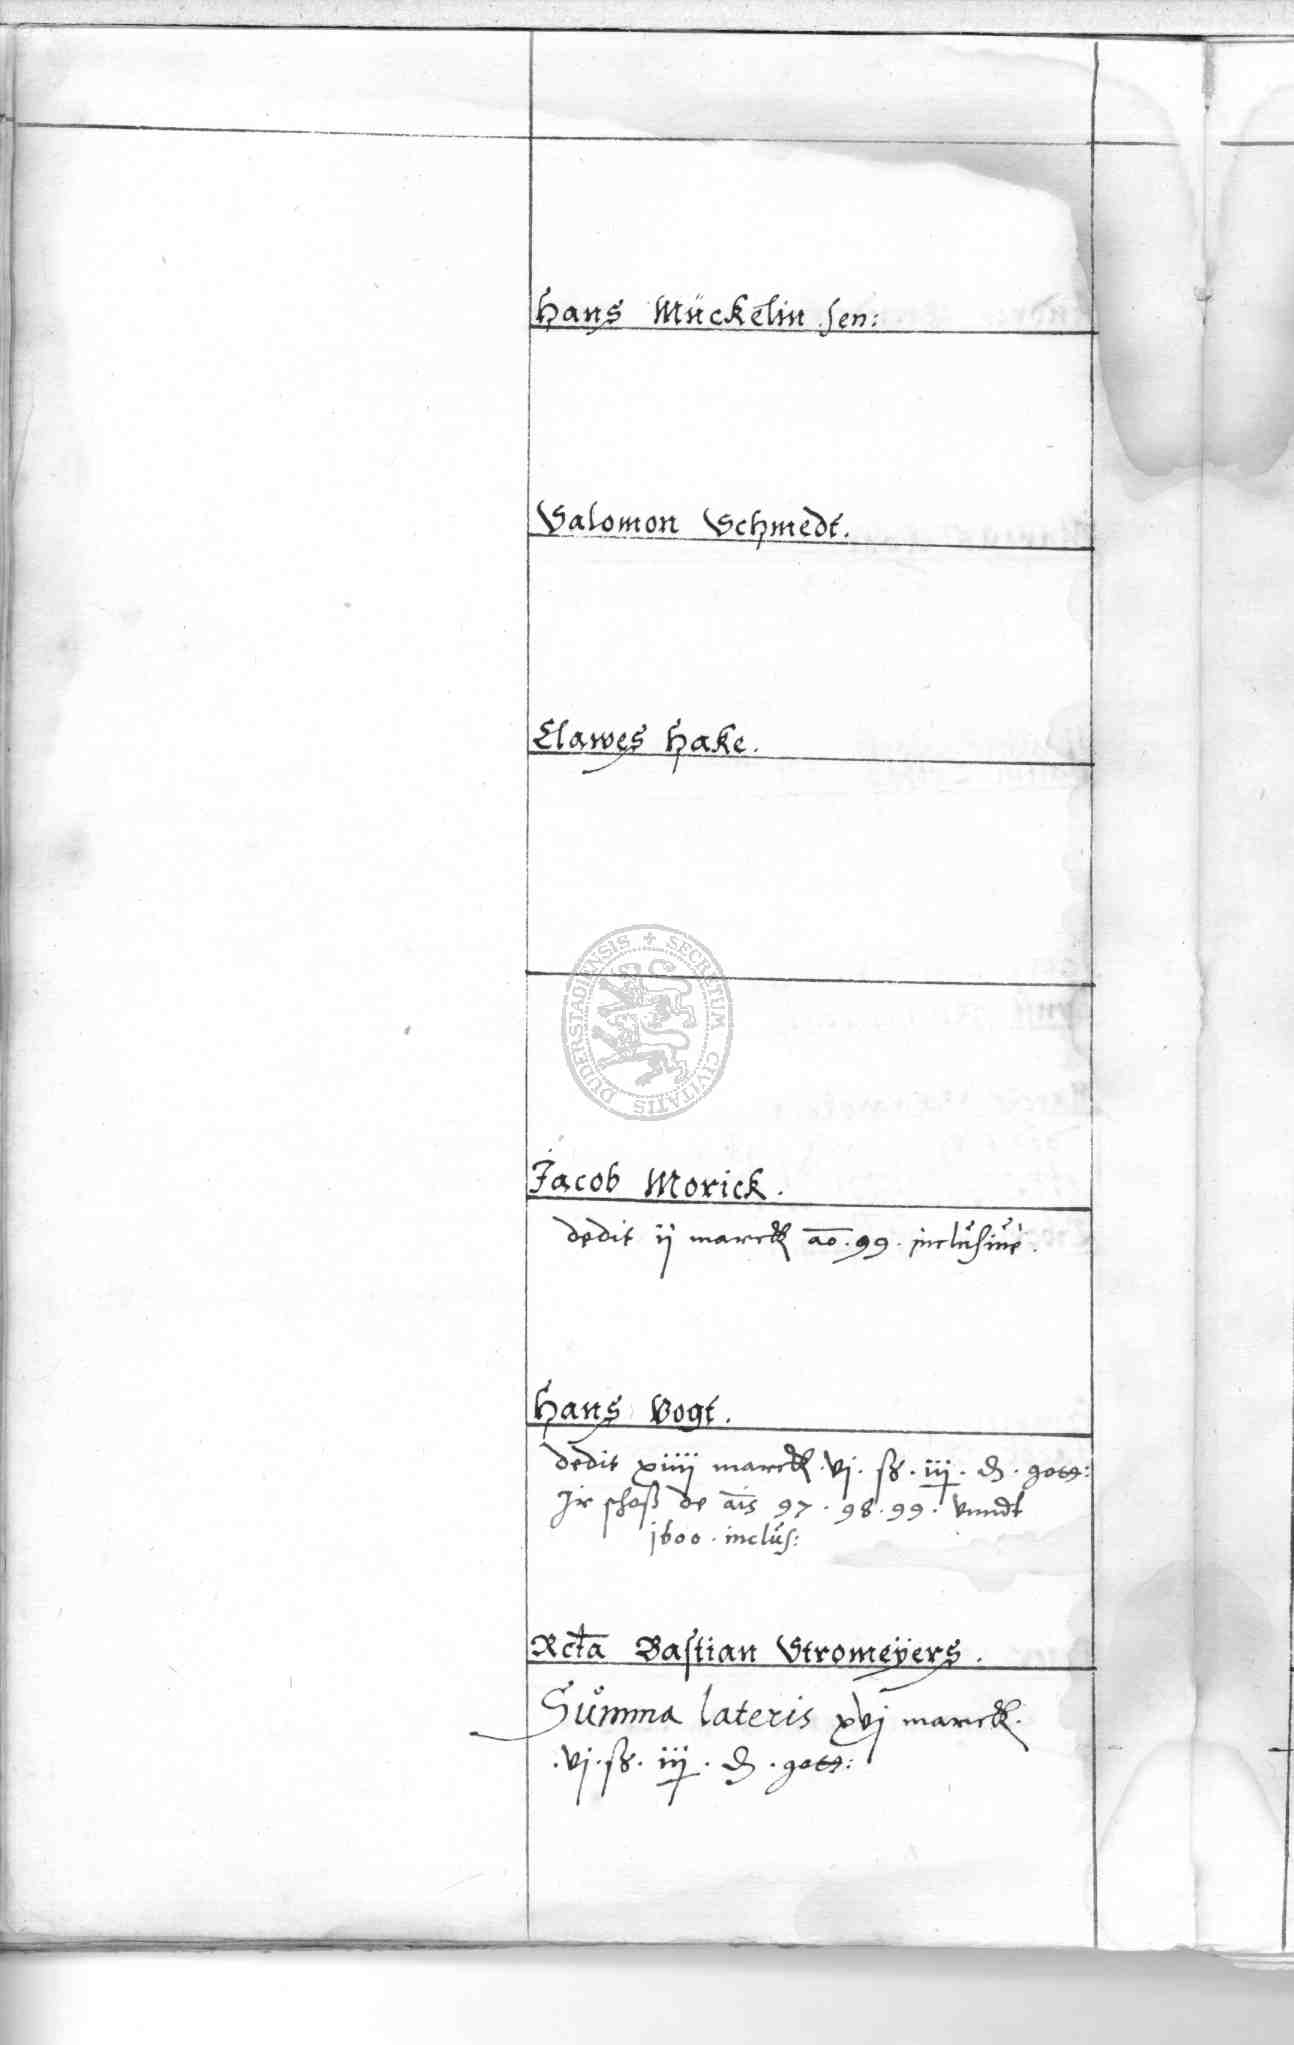 Hans Mückelin sen:
Salomon Schmedt.
Clawes Hake.
SECRETUM CIVITATIS DUDERSTADIENSIS
Jacob Morick.
dedit ij marck ao. 99. inclusiue.
Hans Vogt.
dedit xiiij marck. vj. ß. iij. d. gott:
Ir schoß de ais 97. 98. 99. vnndt
1600. inclus:
Rcta Bastian Stromeÿers.
Summa lateris xvj marck.
.vj. ß. iij. d. gott: